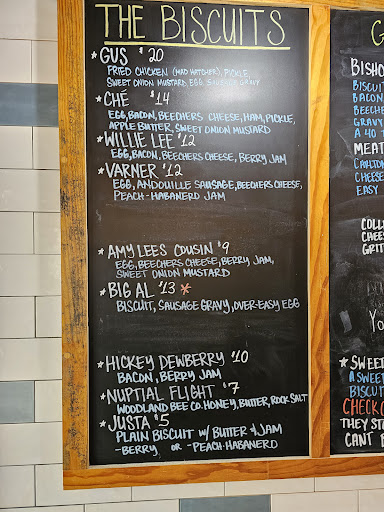 THE BISCUITS
* GUS $20
FRIED CHICKEN (MAD HATCHER), PICKLE,
SWEET ONION MUSTARD, EGG, SAUSAGE GRAVY
* CHE $14
EGG, BACON, BEECHERS CHEESE, HAM, PICKLE,
APPLE BUTTER, SWEET ONION MUSTARD
* WILLIE LEE $12
EGG, BACON, BEECHERS CHEESE, BERRY JAM
* VARNER $12
EGG, ANDOUILLE SAUSAGE, BEECHERS CHEESE,
PEACH-HABANERO JAM
* AMY LEES COUSIN $9
EGG, BEECHERS CHEESE, BERRY JAM,
SWEET ONION MUSTARD
* BIG AL $13 *
BISCUIT, SAUSAGE GRAVY, OVER-EASY EGG
* HICKEY DEWBERRY $10
BACON, BERRY JAM
* NUPTIAL FLIGHT $7
WOODLAND BEE CO. HONEY, BUTTER, ROCK SALT
* JUSTA $5
PLAIN BISCUIT W/ BUTTER & JAM
-BERRY OR -PEACH-HABANERO
G
BISHO
BISCUIT
BACON
BEECHE
GRAVY
A 40
MEAT
CARLTON
CHEESE
EASY
COLLS
CHEES
GRIT
YO
* SWEET
A SWEET
BISCUIT
CHECK
THEY ST
CANT B